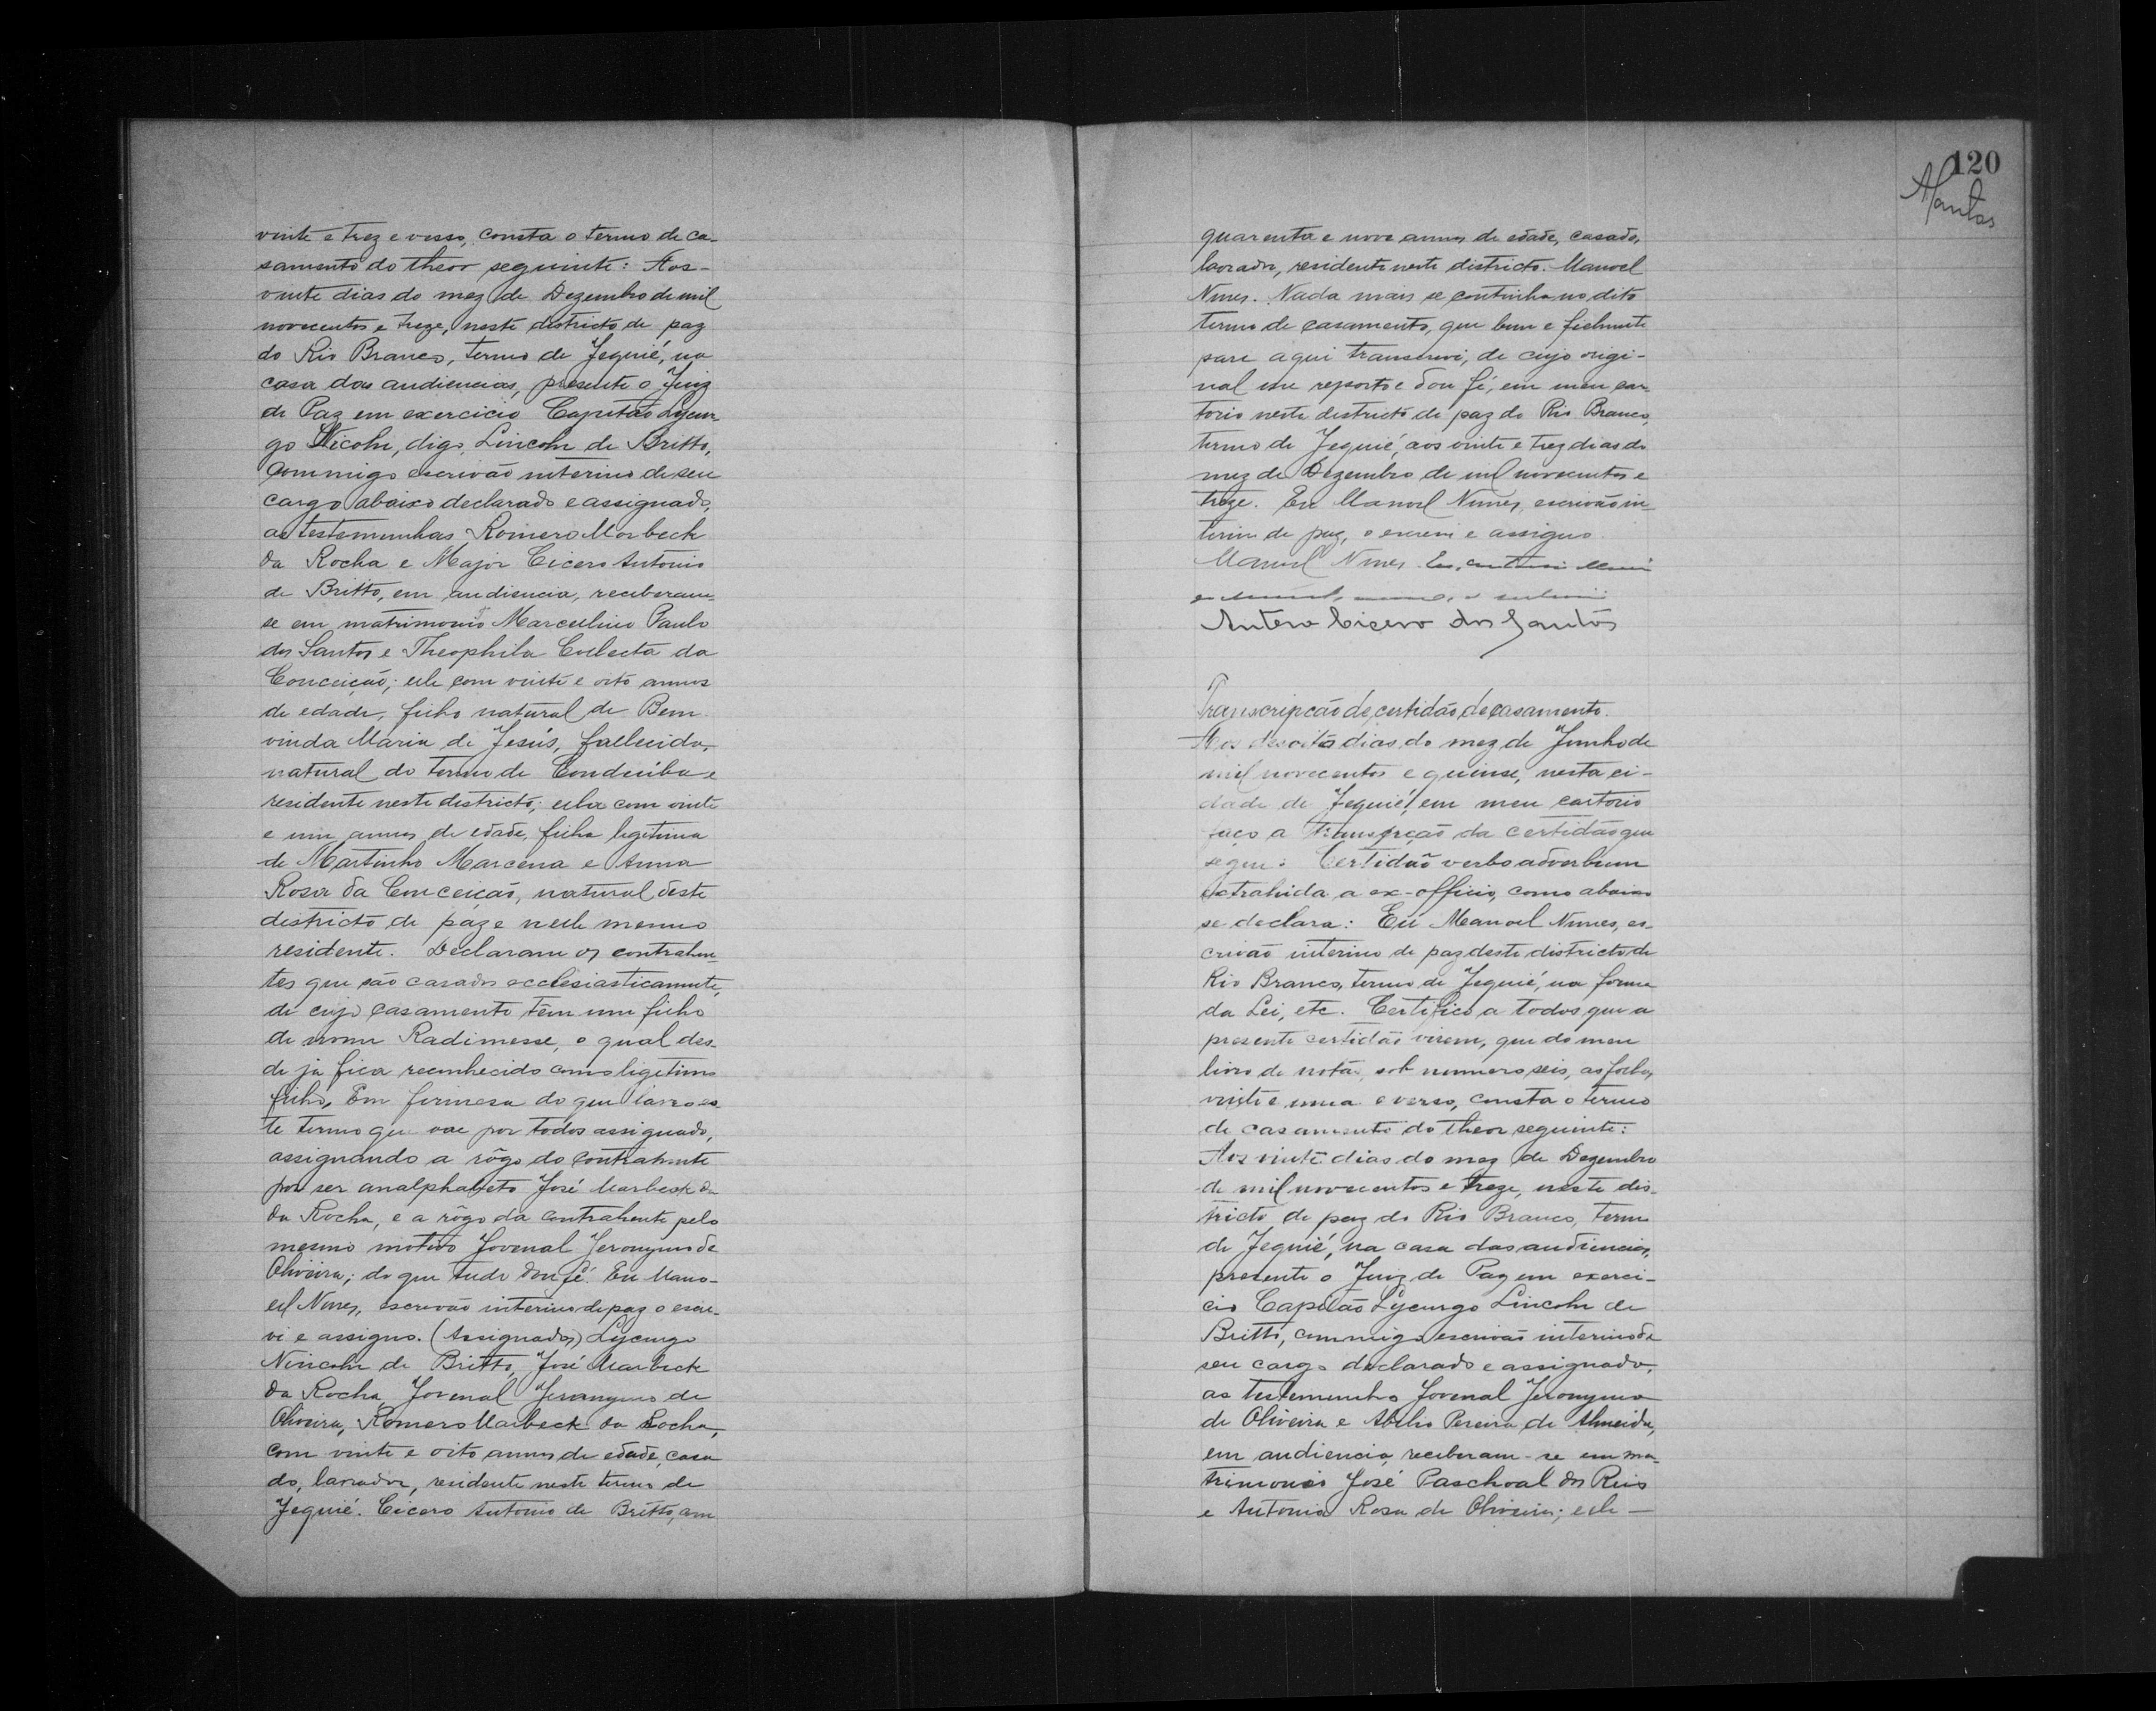 vinte e trez e verso, consta o termo de ca-
samento do theor seguinte: Aos-
vinte dias do mez de Dezembro de mil
novecentos e treze, neste districto de paz
do Rio Branco, termo de Jequié, na
casa das audiencias, presente o Juiz
de Paz em exercicio Capitão Lycur-
go Nicoln, digo, Lincoln de Britto,
commigo escrivão interino de seu
cargo abaixo declarado e assignado,
as testemunhas Romero Marbeck
da Rocha e Major Cicero Antonio
de Britto, em audiencia, receberam-
se em matrimonio Marcellino Paulo
dos Santos e Theophila Collecta da
Conceição; elle com vinte e oito annos
de edade, filho natural de Bem-
vinda Maria de Jesús, fallecida,
natural do termo de Condeúba e
residente neste districto; ella com vinte
e um annos de edade, filha legitima
de Martinho Marcena e Anna
Rosa da Conceição, natural deste
districto de paz e nelle mesmo
residente. Declaram os contrahen-
tes que são casados ecclesiasticamente,
de cujo casamento têm um filho
de nome Radimesse, o qual des-
de já fica reconhecido como ligitimo
filho. Em firmesa do que lavro es-
te termo que vae por todos assignado,
assignando a rôgo do contrahente
por ser analphabeto José Marbeck da
da Rocha, e a rôgo da contrahente pelo
mesmo motivo Jovenal Jeronymo de
Oliveira; do que tudo dou fé. Eu Mano-
el Nunes, escrivão interino de paz o escre-
vi e assigno. (Assignados) Lycurgo
Nincoln de Britto, José Marbeck
da Rocha, Jovenal Jeronymo de
Oliveira, Romero Marbeck da Rocha,
com vinte e oito annos de edade, casa
do, lavrador, residente neste termo de
Jequié. Cicero Antonio de Britto, com
120
quarenta e nove annos de edade, casado,
lavrador, residente neste districto. Manoel
Nunes. Nada mais se continha no dito
termo de casamento, que bem e fielmente
para aqui transcrevi, de cujo origi-
nal me reporto e dou fé, em meu car-
torio neste districto de paz do Rio Branco,
termo de Jequié, aos vinte e trez dias do
mez de Dezembro de mil novecentos e
treze. Eu Manoel Nunes, escrivão in
terino de paz, o escrevi e assigno.
Manoel Nunes.
Antero Cicero dos Santos
Transcripção de certidão de casamento.
Aos desoito dias do mez de Junho de
mil novecentos e quinse, nesta ci-
dade de Jequié, em meu cartorio
faço a transcrção da certidão que
segue: Certidão verbo adverbum
extrahida a ex-officio, como abaixo
se declara: Eu Manoel Nunes, es-
crivão interino de paz deste districto de
Rio Branco, termo de Jequié, na forma
da Lei, etc. Certifico a todos que a
presente certidão virem, que do meu
livro de notas, sob numero seis, as folhas
vinte e uma e verso, consta o termo
de casamento do theor seguinte:
Aos vinte dias do mez de Dezembro
de mil novecentos e treze, neste dis-
tricto de paz do Rio Branco, termo
de Jequié, na casa das audiencias,
presente o Juiz de Paz em exerci-
cio Capitão Lycurgo Lincoln de
Britto, commigo escrivão interino de
seu cargo declarado e assignado,
as testemunhas Jovenal Jeronymo
de Oliveira e Abilio Pereira de Almeida,
em audiencia, receberam-se em ma-
trimonio José Paschoal dos Reis
e Antonia Rosa de Oliveira; elle-